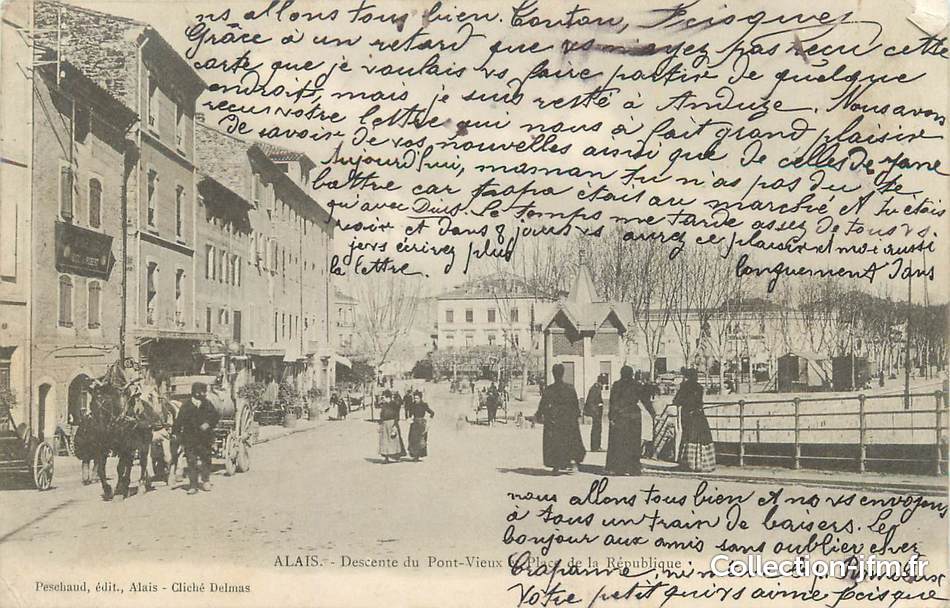 ns allons tous bien. Tonton,
Grâce à un retard que vs n'ayez pas reçu cette
carte que je voulais vs faire partir de quelque
endroit, mais je suis resté à Anduze. Nous avons
reçu votre lettre qui nous a fait grand plaisir
de savoir de vos nouvelles ainsi que de celles de
Aujourd'hui, maman tu n'as pas du te
battre car papa était au marché et tu étais
qu'avec Le temps me tarde assez de tous vs
voir et dans 8 jours vs aurez ce plaisir et moi aussi
écrivez plus
longuement dans
la lettre.
nous allons tous bien et ns vs envoyons
à tous un train de baisers. Le
bonjour aux amis sans oublier chez
ALAIS. - Descente du Pont-Vieux Place de la République
Crapanne, ni
Peschaud, édit., Alais - Cliché Delmas
Votre petit qui vs aime
Collection-jfm.fr